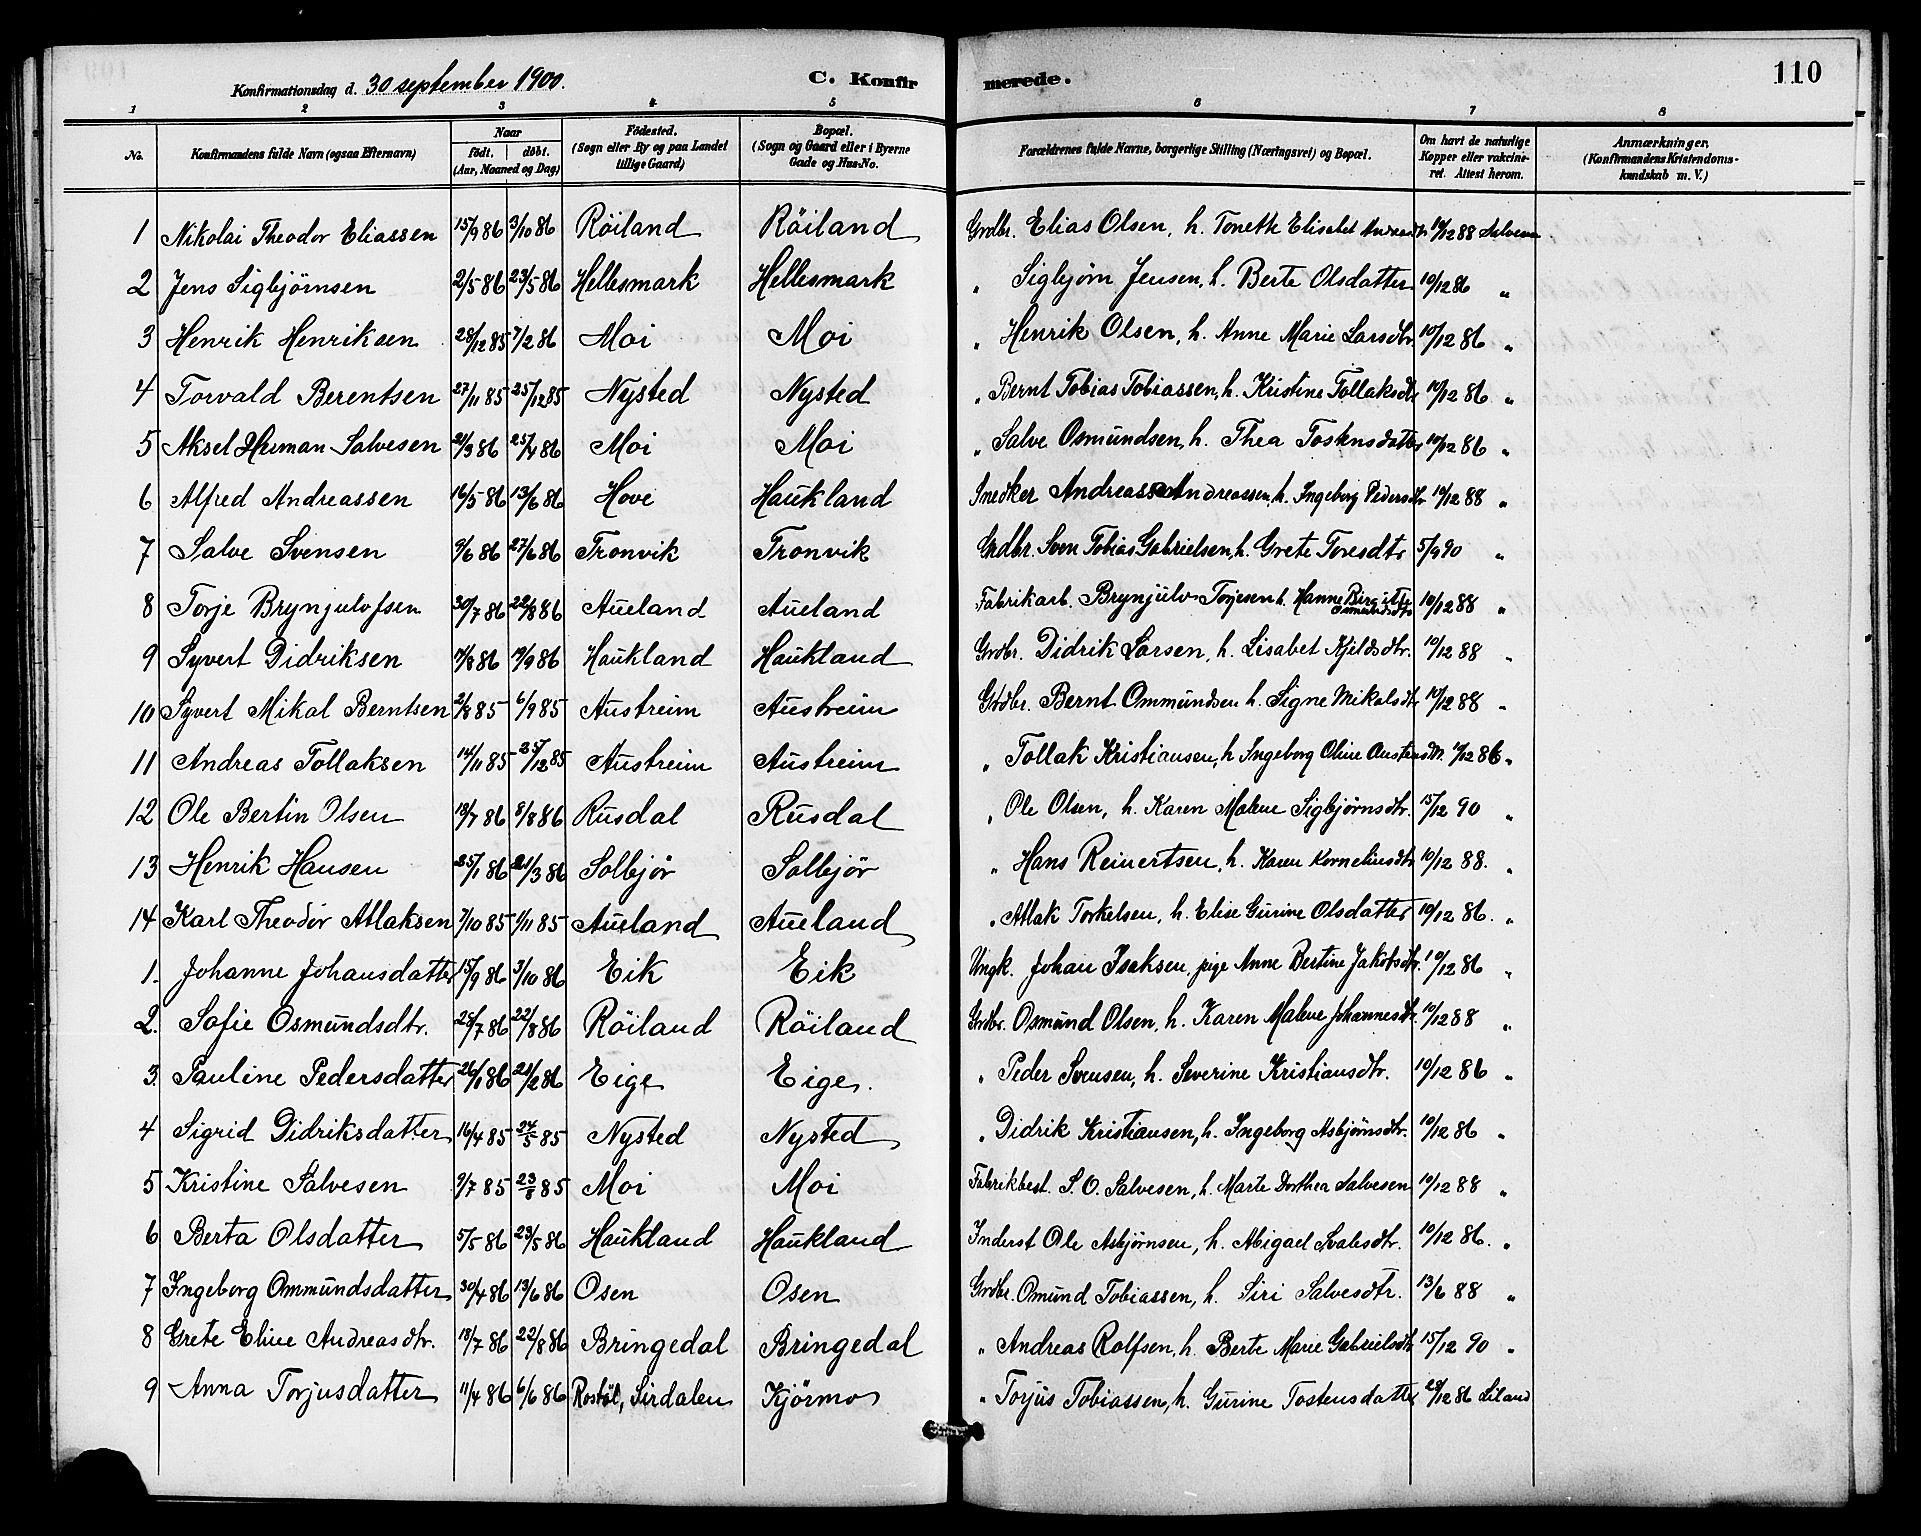 110
Konfirmationsdag d. 30 september 1900. C. Konfirmerede.
1 2 3 4 5 6 7 8
No. Konfirmandens fulde Navn (ogsaa Efternavn) Naar födt. döbt. (Aar, Maaned og Dag) Födested. (Sogn eller By og paa Landet tillige Gaard) Bopæl. (Sogn og Gaard eller i Byerne Gade og Hus-No. Forældrenes fulde Navne, borgerlige Stilling (Næringsvei) og Bopæl. Om havt de naturlige Kopper eller vakcineret. Attest herom. Anmærkninger. (Konfirmandens Kristendomskundskab m. V.)
1 Nikolai Theodor Eliassen 15/9 86 3/10 86 Röiland Röiland Grdbr. Elias Olsen, h. Tonette Elisabet 10/12 88 Salvesen
2 Jens Sigbjörnsen 2/5 86 23/5 86 Hellesmark Hellesmark " Sigbjørn Jensen, h. Berte Olsdatter 10/12 86 "
3 Henrik Henriksen 28/12 85 7/2 86 Moi Moi " Henrik Olsen, h. Anne Marie Larsdtr 10/12 86 "
4 Torvald Berentsen 27/11 85 25/12 85 Nysted Nysted " Bernt Tobias Tobiassen, h. Kristine Tollaksdtr 10/12 86 "
5 Aksel Herman Salvesen 21/3 86 25/4 86 Moi Moi " Salve Osmundsen, h. Thea Tostensdatter 10/12 86 "
6 Alfred Andreassen 16/5 86 13/6 86 Hove Haukland Snedker Andreas Andreassen, h. Ingeborg Pedersdtr 10/12 88 "
7 Salve Svensen 9/6 86 27/6 86 Tronvik Tronvik Grdbr. Sven Tobias Gabrielsen, h. Grete Toresdtr 5/9 90 "
8 Torje Brynjulofsen 30/7 86 22/8 86 Aueland Aueland Fabrikarb. Brynjulv Torjesen h. Hanne Birgitte Osmundsdtr 10/12 88 "
9 Syvert Didriksen 17/8 86 19/9 86 Haukland Haukland Grdbr. Didrik Larsen, h. Lisabet Kjeldsdtr. 10/12 88 "
10 Syvert Mikal Berntsen 2/8 85 6/9 85 Austreim Austreim Grdbr. Bernt Ommundsen h. Signe Mikalsdtr 10/12 88 "
11 Andreas Tollaksen 14/11 85 25/12 85 Austreim Austreim " Tollak Kristiansen, h Ingeborg Oline Austensdtr. 10/12 86 "
12 Ole Bertin Olsen 13/7 86 8/8 86 Rusdal Rusdal " Ole Olsen, h. Karen Malene Sigbjørnsdtr. 15/12 90 "
13 Henrik Hansen 25/1 86 21/3 86 Solbjör Solbjör " Hans Reinertsen, h. Karen Korneliusdtr 10/12 88. "
14 Karl Theodor Atlaksen 7/10 85 1/11 85 Aueland Aueland " Atlak Torkelsen, h. Elise Gurine Olsdatter 10/12 86. "
1. Johanne Johansdatter 15/9 86 3/10 86 Eik Eik Ungk. Johan Isaksen, pige Anne Bertine Jakobsdtr. 10/12 86 "
2. Sofie Osmundsdtr. 25/7 86 22/8 86 Röiland Röiland Grdbr. Osmund Olsen, h. Karen Malene Johannesdtr. 10/12 88 "
3. Pauline Pedersdatter 26/1 86 21/2 86 Eige Eige. " Peder Svensen, h. Severine Kristiansdtr. 10/12 86 "
4 Sigrid Didriksdatter 16/4 85 24/5 85 Nysted Nysted " Didrik Kristiansen, h. Ingeborg Asbjørnsdtr. 10/12 86 "
5 Kristine Salvesen 9/7 85 23/8 85 Moi Moi Fabrikbest. S. O. Salvesen, h. Marte Dorthea Salvesen 10/12 88 "
6 Berta Olsdatter 5/5 86 23/5 86 Haukland Haukland Inderst Ole Asbjørnsen, h. Abigael Svalesdtr. 10/12 86. "
7 Ingeborg Ommundsdatter 30/4 86 13/6 86 Osen Osen Grdbr. Omund Tobiassen, h. Siri Salvesdtr. 13/6 88 "
8 Grete Eline Andreasdtr. 18/7 86 22/8 86 Bringedal Bringedal " Andreas Rolfsen, h. Berte Marie Gabrielsdtr 15/12 90 "
9 Anna Torjusdatter 11/4 86 6/6 86 Rostöl, Sirdalen Kjörmo " Torjus Tobiassen, h. Gurine Tostensdatter 28/12 86 Liland